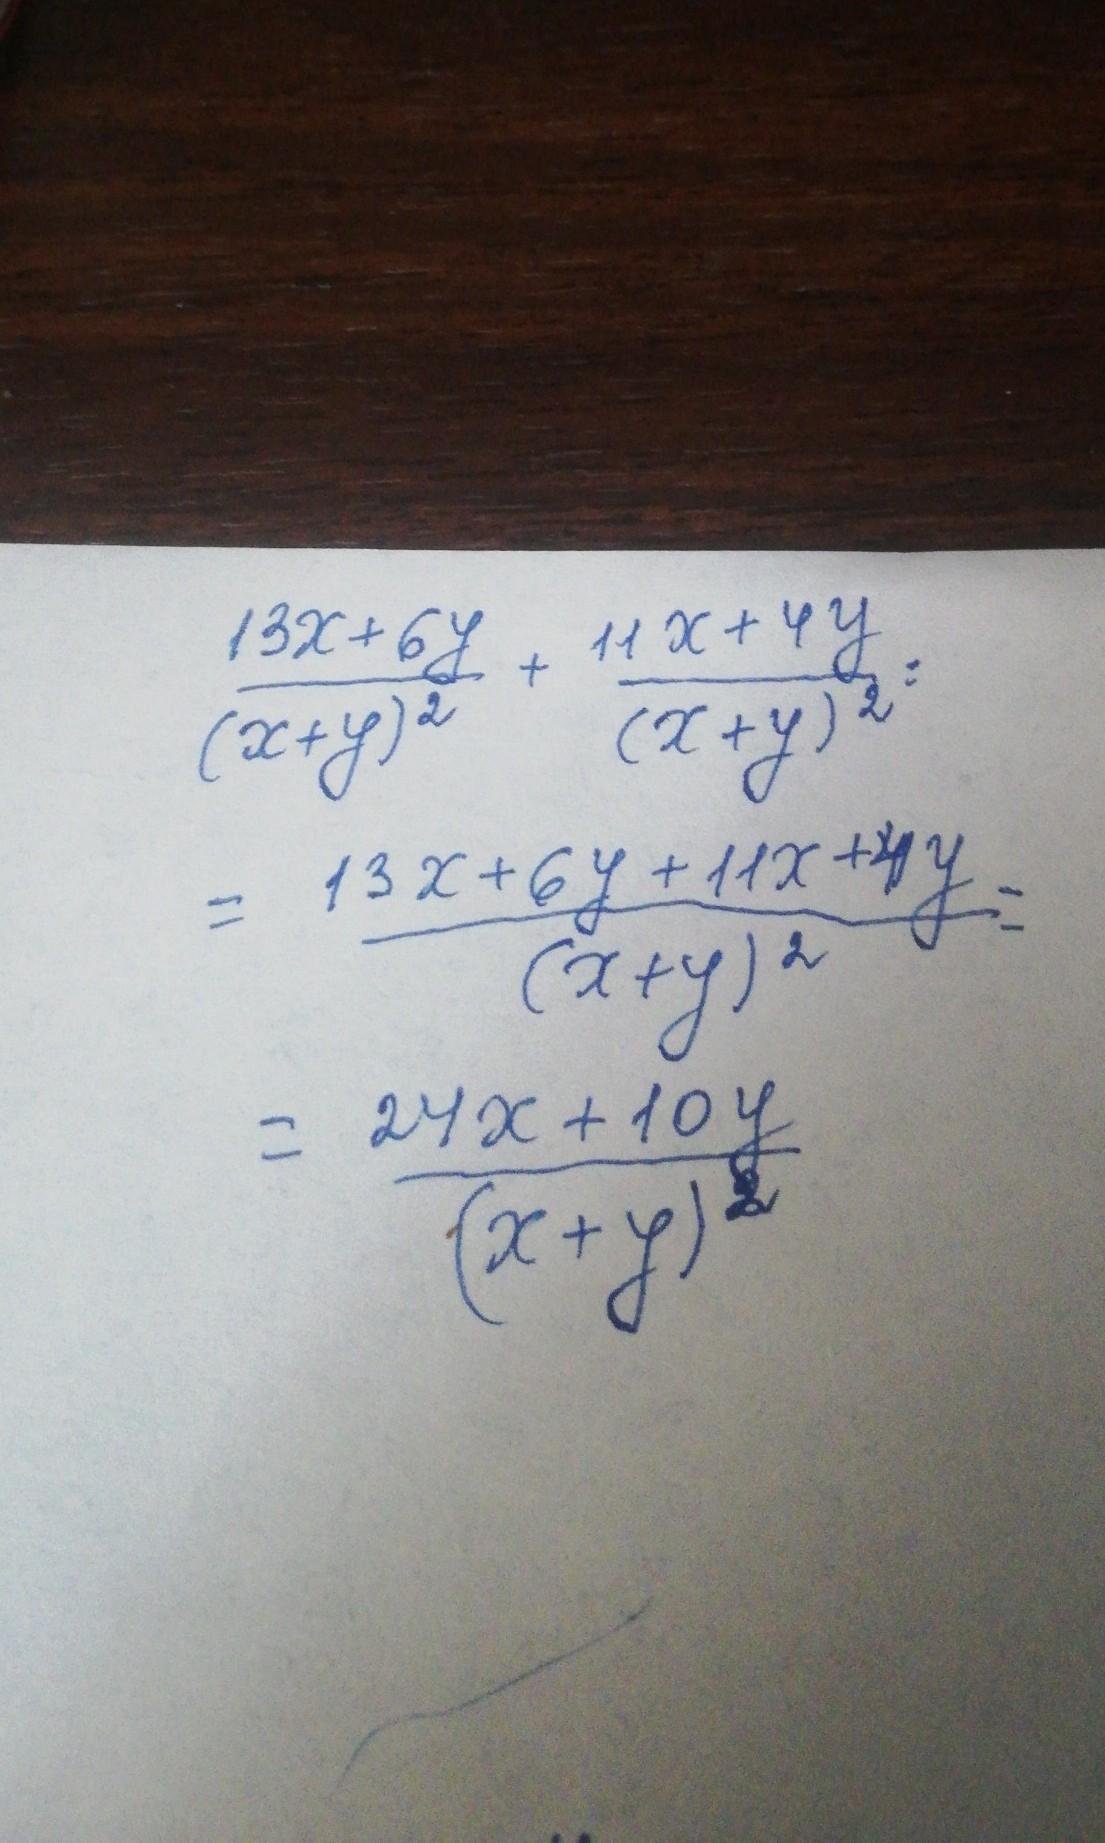 (13x+6y)/(x+y)² + (11x+4y)/(x+y)² =
= (13x+6y+11x+4y)/(x+y)² =
= (24x+10y)/(x+y)²